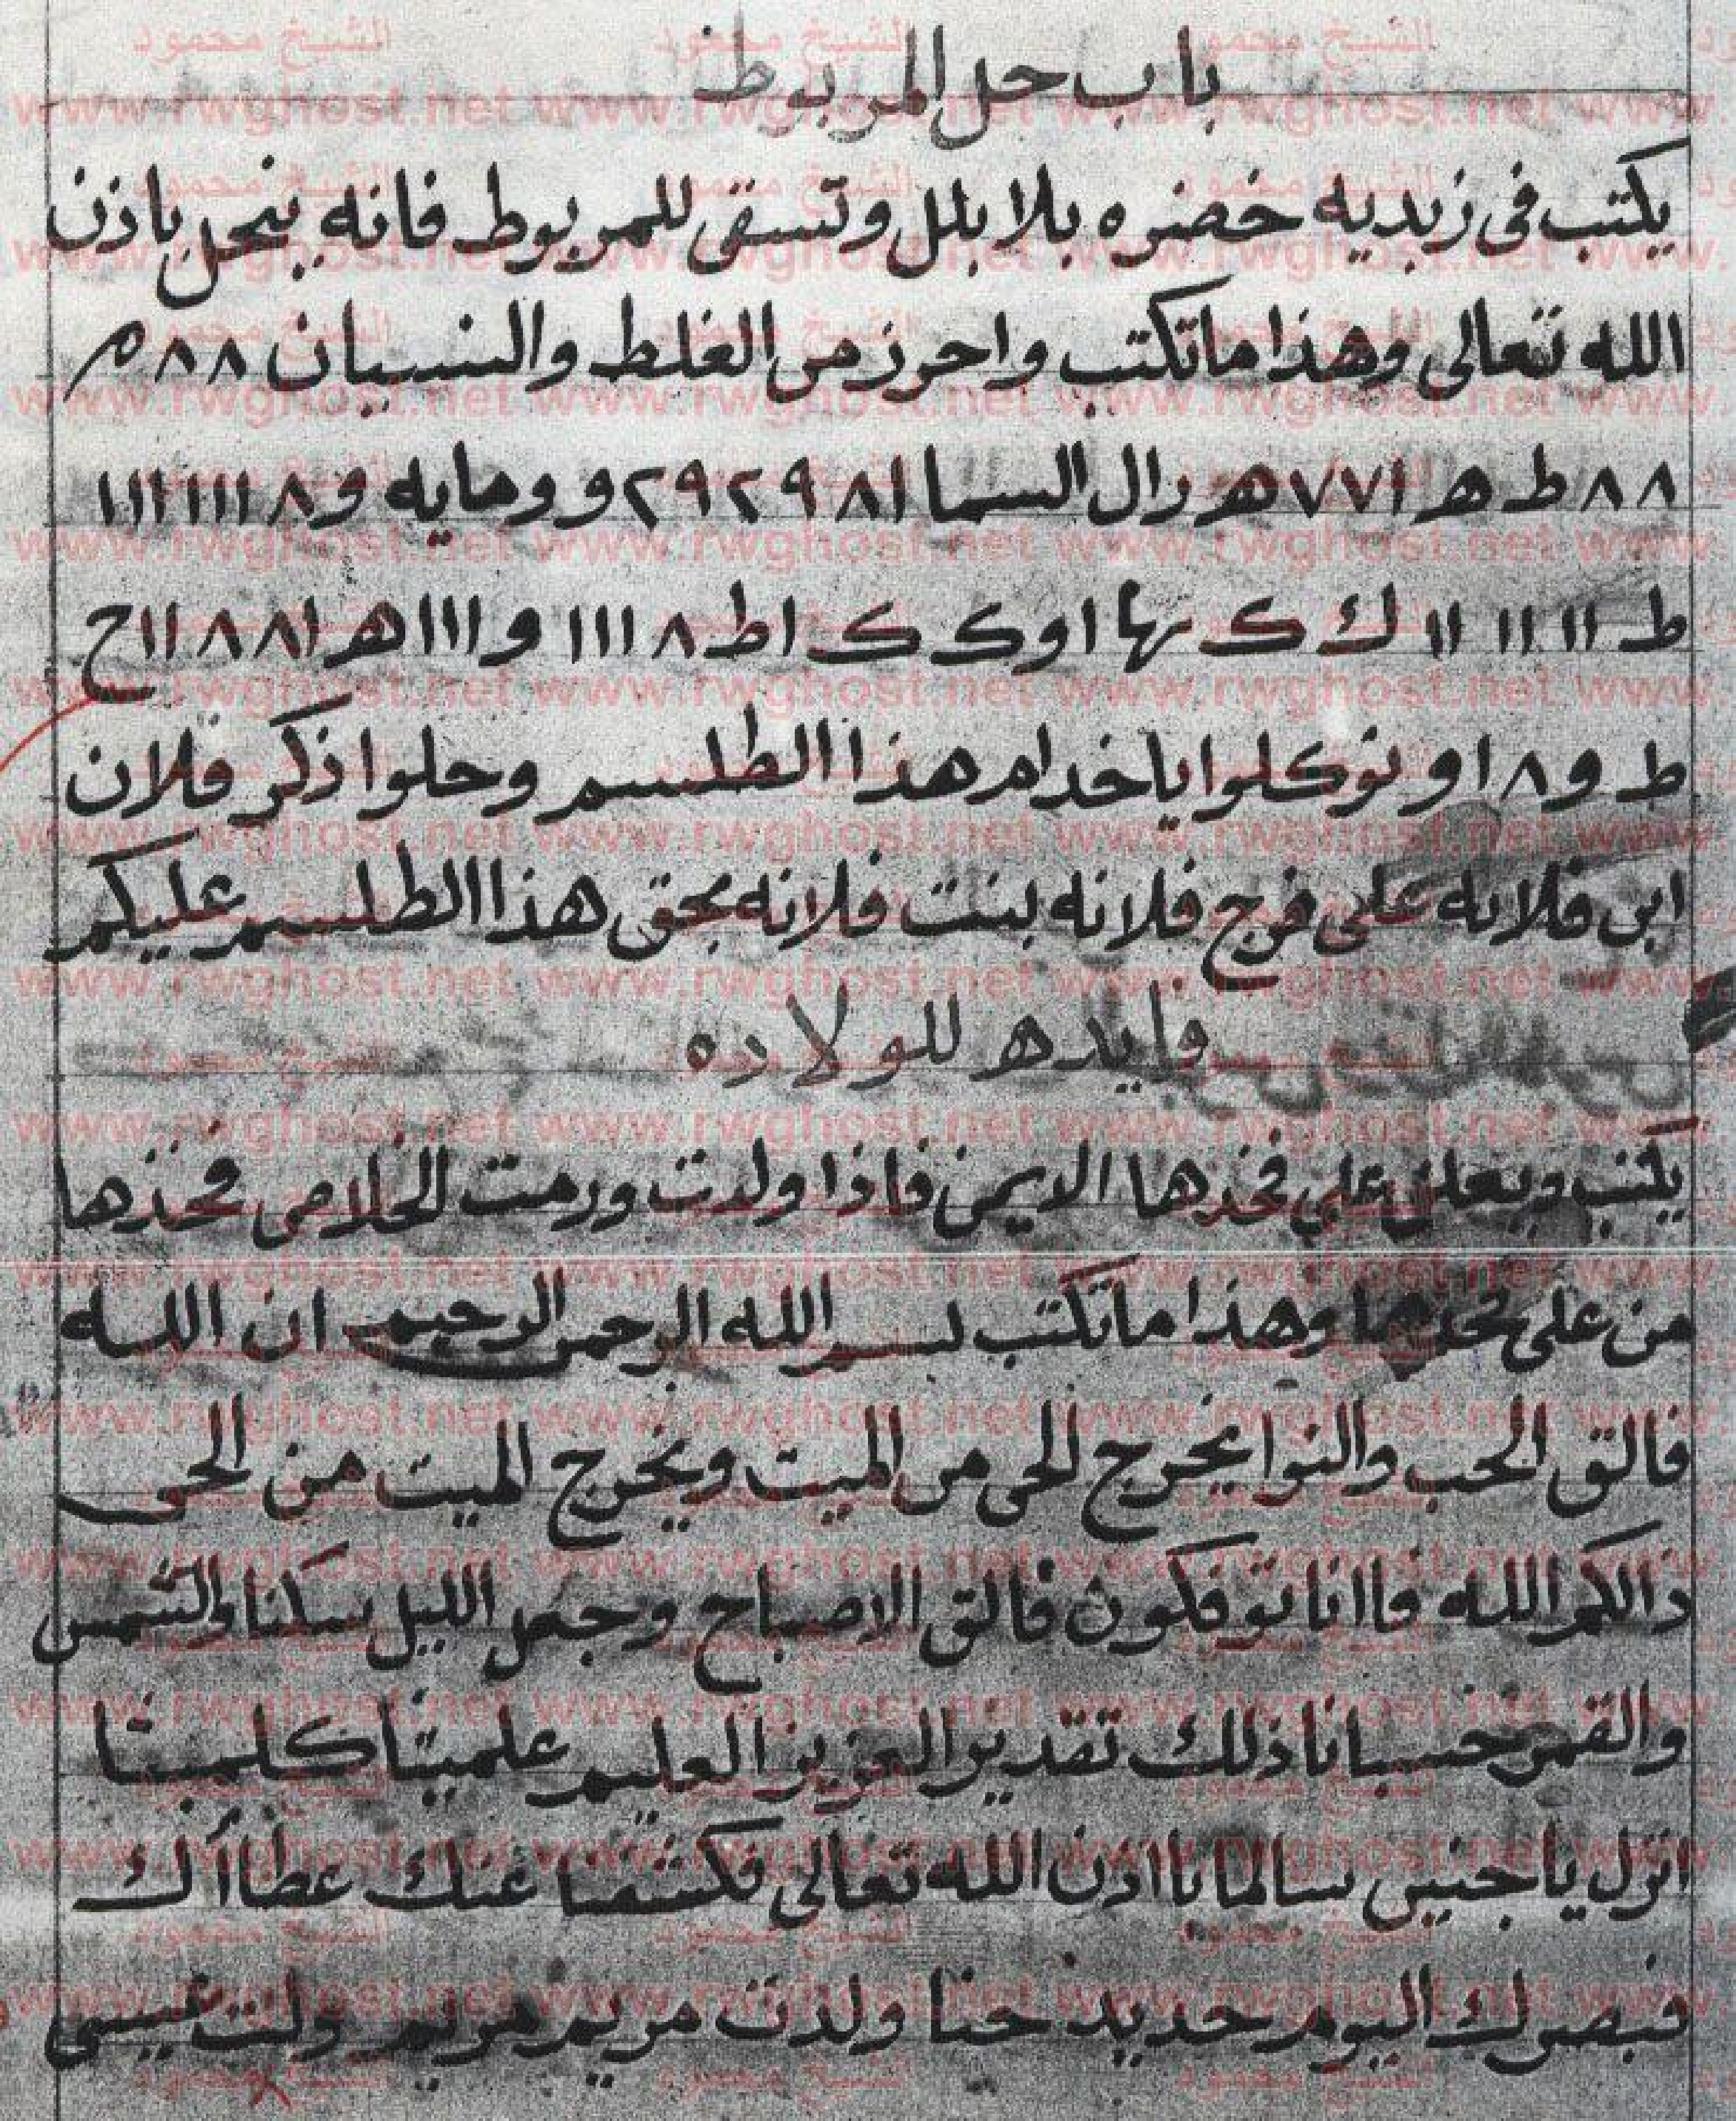 باب حل المربوط
يكتب فى زبديه خضره بلا بلل وتسقى للمربوط فانه ينحل باذن
الله تعالى وهذا ما تكتب واحرز من الغلط والنسيان ٨٨م
٨٨ ط ه ا٧٧ه دال السما ا٨ ٩ ٢ ٩ ٢ و ومايه و ٨ ااا ااا ااا
ط اا اا اا ك ك بها اوك ك اط ٨ ااا و اااه ا٨٨ ااح
ط و ٨ ا و توكلوا ياخدام هذا الطلسم وحلوا ذكر فلان
ابن فلانه على فرج فلانه بنت فلانه بحق هذا الطلسم عليكم
فايده للولاده
يكتب ويعلق على فخذها الايمن فاذا ولدت ورمت الخلاص فخذها
من على فخذها وهذا ما تكتب بسم الله الرحمن الرحيم ان الله
فالق الحب والنوا يخرج الحى من الميت ويخرج الميت من الحى
ذالكم الله فاانا توفكون فالق الاصباح وجعل الليل سكنا والشمس
والقمر حسبانا ذلك تقدير العزيز العليم علميثا كلميثا
انزل يا جنين سالما باادن الله تعالى فكشفنا عنك عطاأك
فبصرك اليوم حديد حنا ولدت مريم مريم ولت عيسى
الشيخ محمود
www.rwghost.net